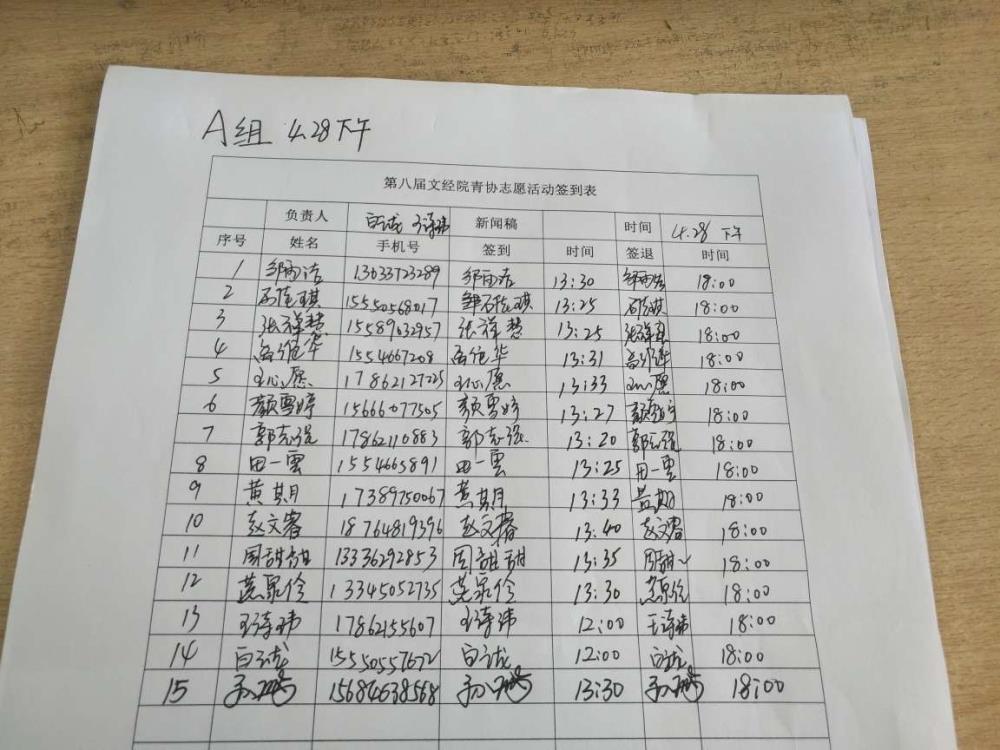 A组 4.28下午
第八届文经院青协志愿活动签到表
负责人 白 王诗玮 新闻稿 时间 4.28 下午
序号 姓名 手机号 签到 时间 签退 时间
1 邹雨洁 13633723289 邹雨洁 13:30 邹雨洁 18:00
2 石佳琪 15550568017 石佳琪 13:25 石佳琪 18:00
3 张祥慧 15589032957 张祥慧 13:25 张祥慧 18:00
4 孟维华 1554667208 孟维华 13:31 18:00
5 王心愿 17862127225 王心愿 13:33 王心愿 18:00
6 颜雪婷 15666077505 颜雪婷 13:27 颜雪婷 18:00
7 郭志强 17862110883 郭志强 13:20 郭志强 18:00
8 田一雲 1554665891 田一雲 13:25 田一雲 18:00
9 黄期 17389750067 黄期 13:33 黄期 18:00
10 赵文睿 18764819396 赵文睿 13:40 赵文睿 18:00
11 周甜甜 13336292853 周甜甜 13:35 周甜 18:00
12 13345052735 13:30 18:00
13 王诗玮 17862155607 王诗玮 12:00 王诗玮 18:00
14 白 15550557672 白 12:00 白 18:00
15 孙 15684638568 孙 13:30 孙 18:00